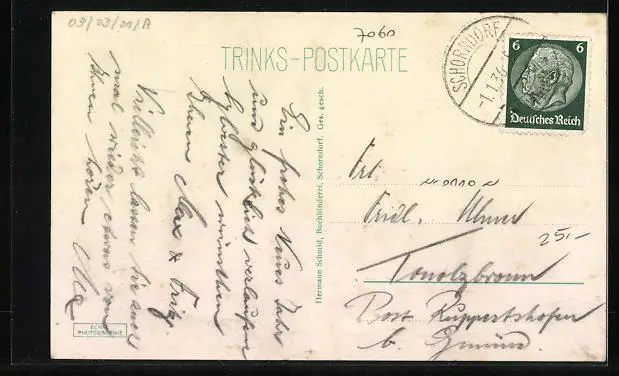 09/03/01/A
7060
TRINKS-POSTKARTE
SCHORNDORF
-1.1.36
6 6
Deutsches Reich
Ein frohes Neues Jahr
und glücklich verlaufene
Sylvester wünschen
Ihnen Max & Fritz
Vielleicht lassen Sie auch
mal wieder etwas von
Ihnen hören
Hermann Schmid, Buchbinderei, Schorndorf. Ges. gesch.
Frl.
Fridl. Ulmer
25.-
Tonolzbronn
Post Ruppertshofen
b. Gmünd.
ECHTE
PHOTOGRAPHIE